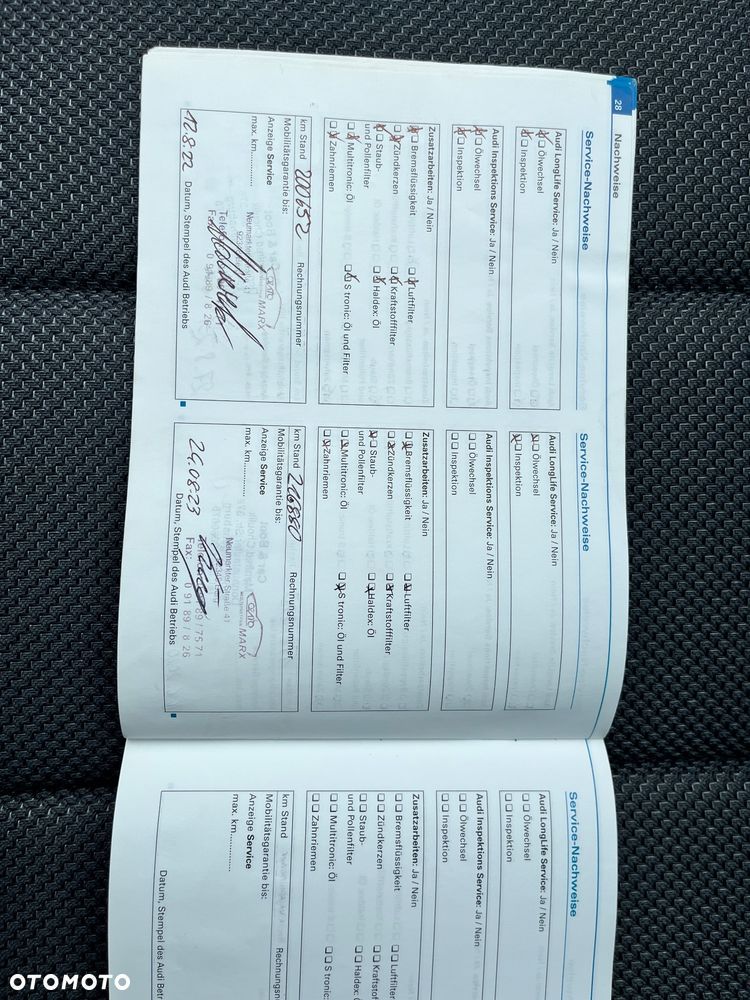 28
Nachweise
Service-Nachweise
Audi LongLife Service: Ja / Nein
Ölwechsel
Inspektion
Audi Inspektions Service: Ja / Nein
Ölwechsel
Inspektion
Zusatzarbeiten: Ja / Nein
Bremsflüssigkeit
Luftfilter
Zündkerzen
Kraftstofffilter
Staub-
und Pollenfilter
Haldex: Öl
Multitronic: Öl
S tronic: Öl und Filter
Zahnriemen
km Stand 200652
Rechnungsnummer
Mobilitätsgarantie bis:
Anzeige Service
max. km
auto MARX
12.8.22
Datum, Stempel des Audi Betriebs
Service-Nachweise
Audi LongLife Service: Ja / Nein
Ölwechsel
Inspektion
Audi Inspektions Service: Ja / Nein
Ölwechsel
Inspektion
Zusatzarbeiten: Ja / Nein
Bremsflüssigkeit
Luftfilter
Zündkerzen
Kraftstofffilter
Staub-
und Pollenfilter
Haldex: Öl
Multitronic: Öl
S tronic: Öl und Filter
Zahnriemen
km Stand 216880
Rechnungsnummer
Mobilitätsgarantie bis:
Anzeige Service
max. km
auto MARX
Neumarkter Straße 41
Fax: 0 91 89 / 8 26
24.08.23
Datum, Stempel des Audi Betriebs
Service-Nachweise
Audi LongLife Service: Ja / Nein
Ölwechsel
Inspektion
Audi Inspektions Service: Ja / Nein
Ölwechsel
Inspektion
Zusatzarbeiten: Ja / Nein
Bremsflüssigkeit
Luftfilter
Zündkerzen
Kraftstof
Staub-
und Pollenfilter
Haldex:
Multitronic: Öl
S tronic:
Zahnriemen
km Stand
Rechnung
Mobilitätsgarantie bis:
Anzeige Service
max. km
Datum, Stempel des Audi Betrieb
OTOMOTO